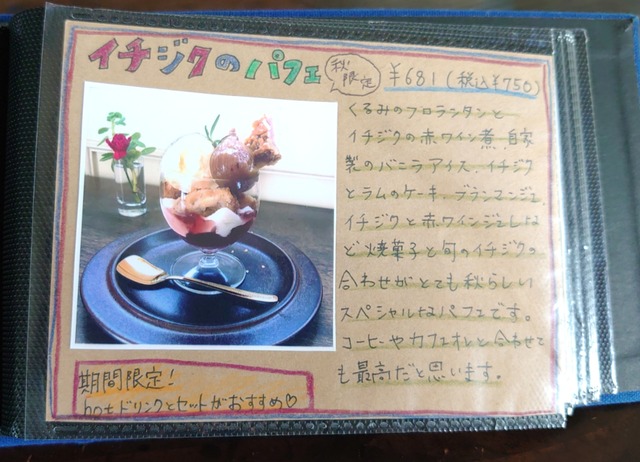 イチジクのパフェ
秋限定
¥681(税込¥750)
くるみのフロランタンと
イチジクの赤ワイン煮、自家
製のバニラアイス、イチジク
とラムのケーキ、ブランマンジェ、
イチジクと赤ワインジュレな
ど焼菓子と旬のイチジクの
合わせがとても秋らしい
スペシャルなパフェです。
コーヒーやカフェオレと合わせて
も最高だと思います。
期間限定!
hotドリンクとセットがおすすめ♡